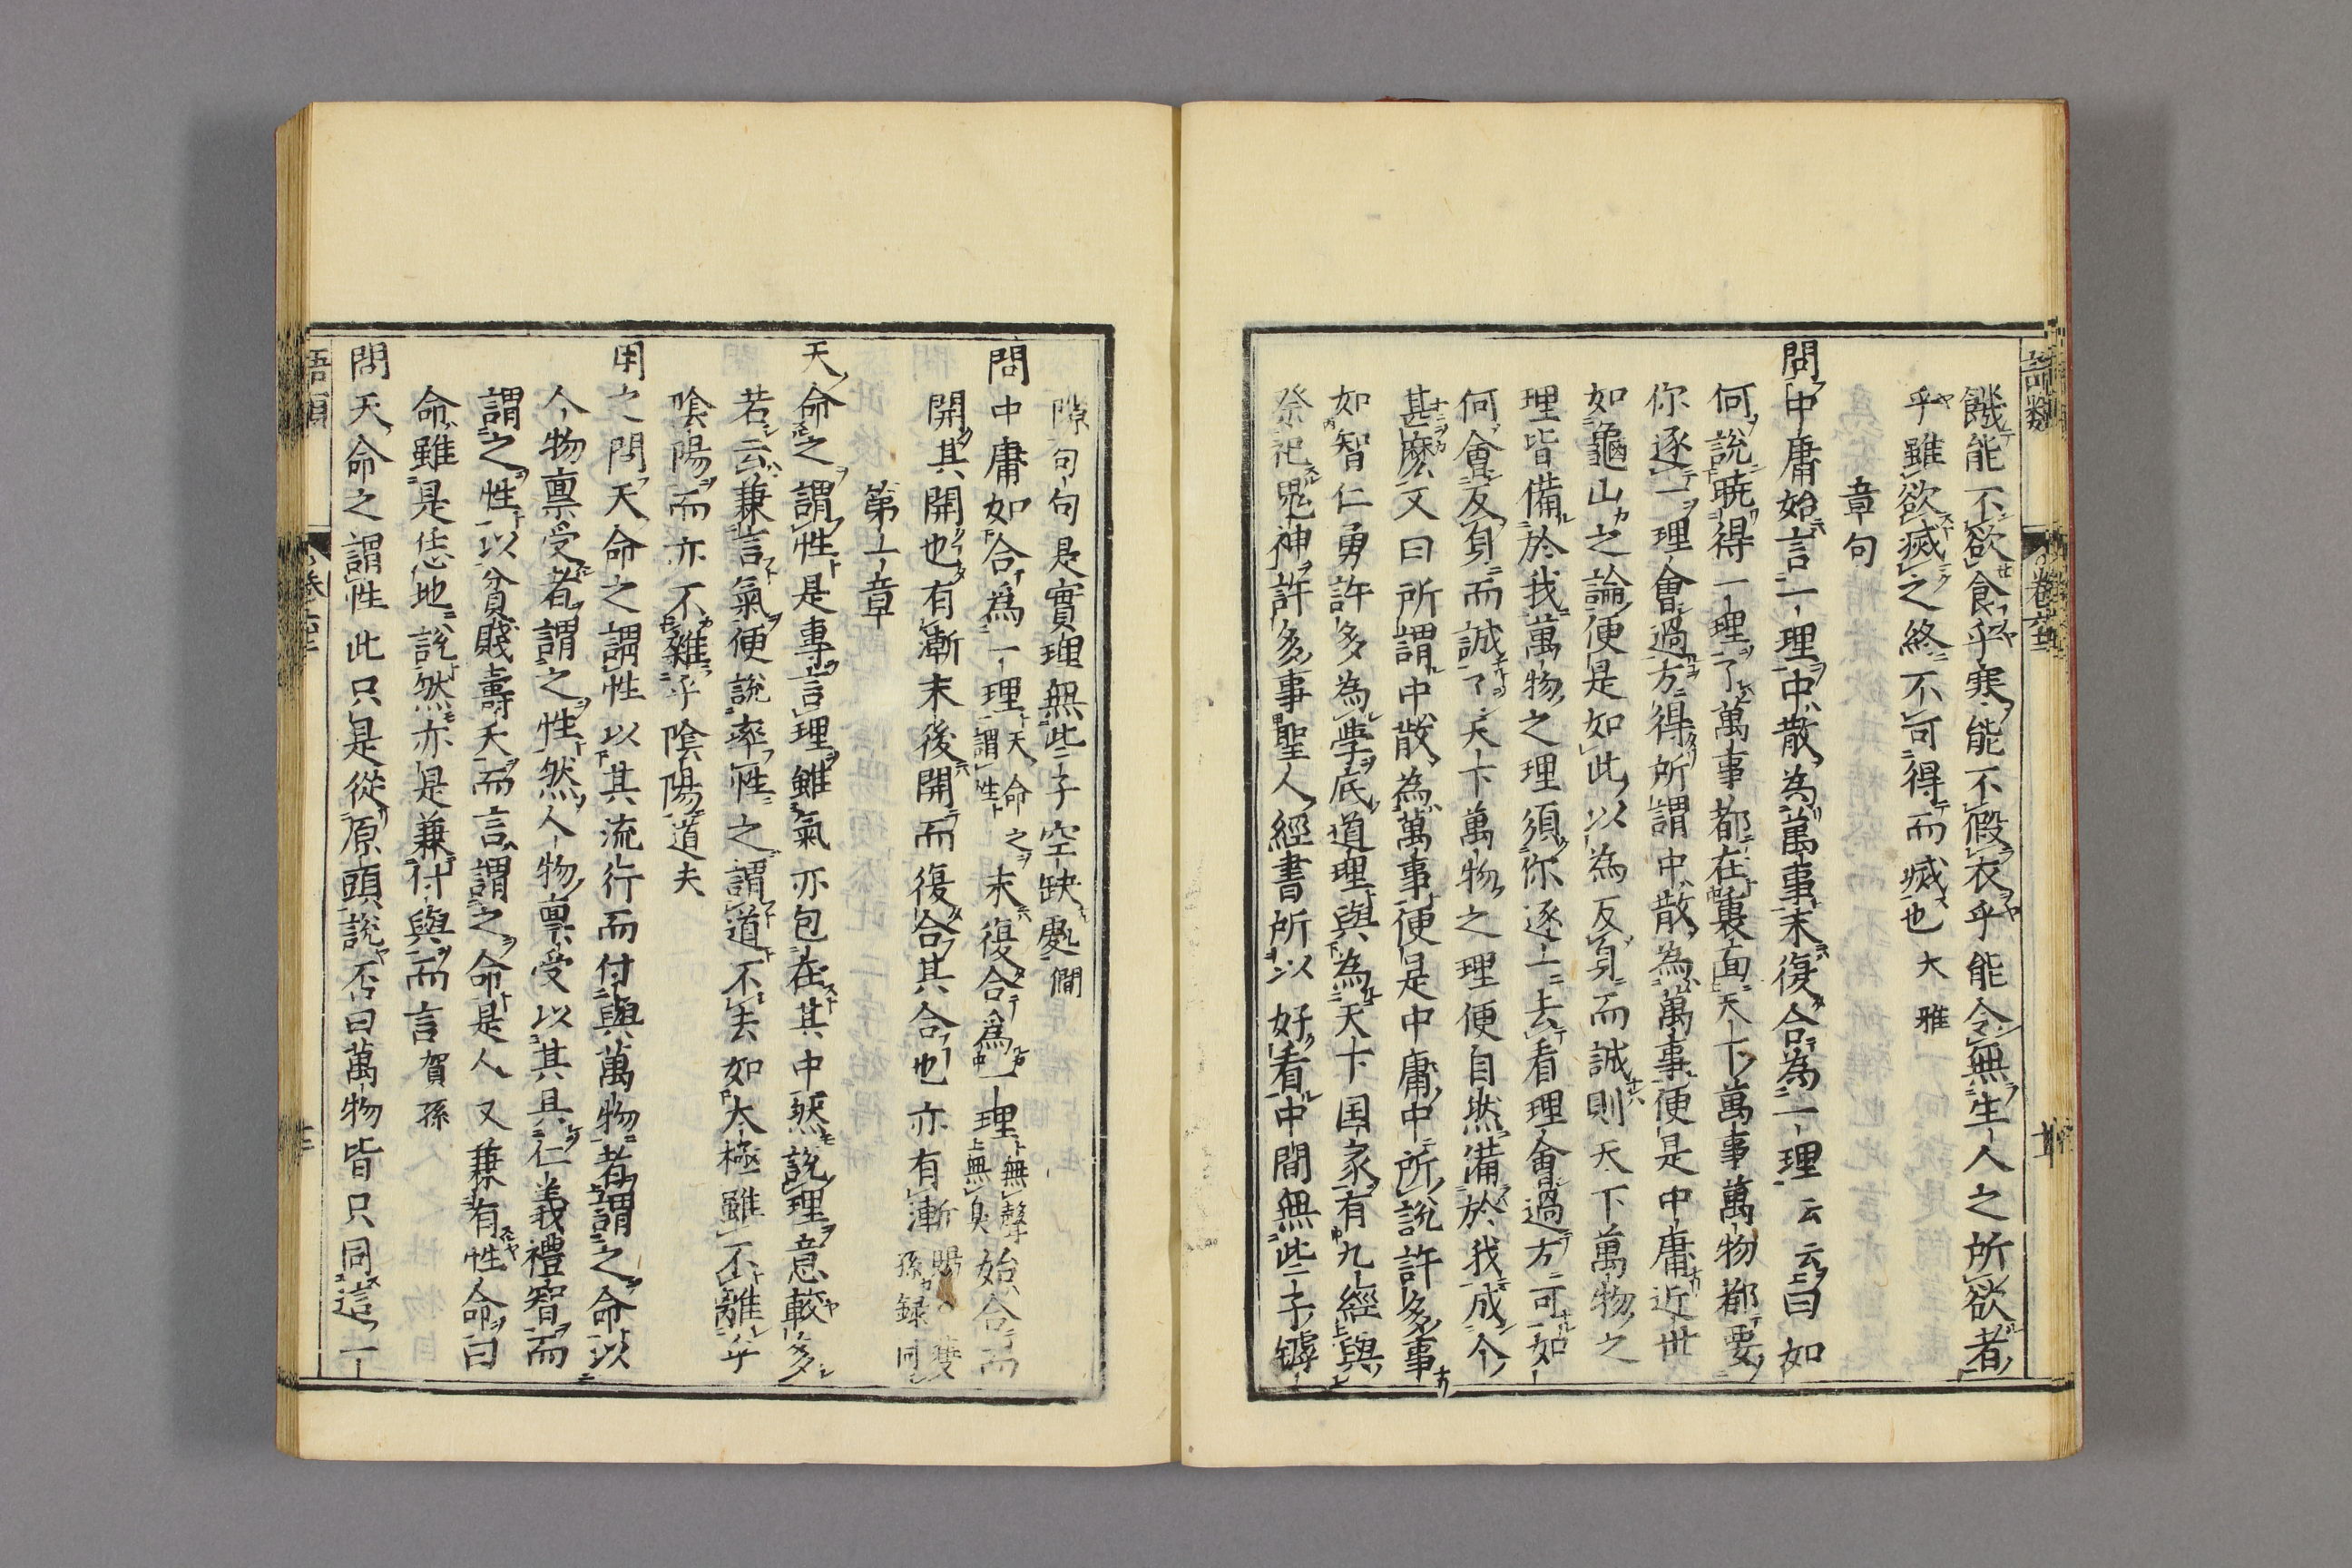 語類
卷六十二
十
饑能不欲食乎寒能不假衣乎能令無生人之所欲者
乎雖欲滅之終不可得而滅也大雅
章句
問中庸始言一理中散為萬事末復合為一理云云曰如
何說曉得一理了萬事都在裏面天下萬事萬物都要
你逐一理會過方得所謂中散為萬事便是中庸近世
如龜山之論便是如此以為反身而誠則天下萬物之
理皆備於我萬物之理須你逐一去看理會過方可如
何會反身而誠了天下萬物之理便自然備於我成个
甚麼又曰所謂中散為萬事便是中庸中所說許多事
如智仁勇許多為學底道理與為天下国家有九經與
祭祀鬼神許多事聖人經書所以好看中間無些子罅
隙句句是實理無些子空缺處僩
問中庸如合為一理天命之謂性末復合為一理無聲無臭始合而
開其開也有漸末後開而復合其合也亦有漸賜○夔孫録同
第一章
天命之謂性是專言理雖氣亦包在其中然說理意較多
若云兼言氣便說率性之謂道不去如太極雖不離乎
陰陽而亦不雜乎陰陽道夫
用之問天命之謂性以其流行而付與萬物者謂之命以
人物禀受者謂之性然人物禀受以其具仁義禮智而
謂之性以貧賤壽夭而言謂之命是人又兼有性命曰
命雖是恁地說然亦是兼付與而言賀孫
問天命之謂性此只是從原頭說否曰萬物皆只同這一
語類
卷六十二